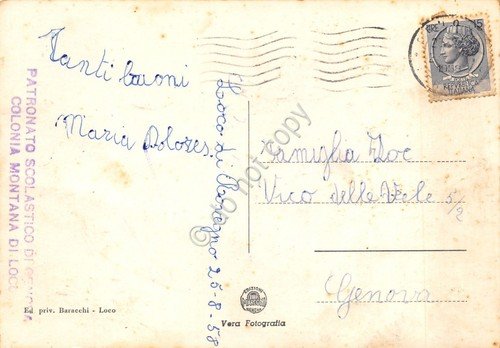 Tanti bacioni
Maria Dolores.
Loco di Rovegno 25-8-58
PATRONATO SCOLASTICO DI GENOVA
COLONIA MONTANA DI LOCO
Famiglia Zoc
Vico delle Vele 5/2
Genova
Ed priv. Baracchi - Loco
Vera Fotografia
do not copy